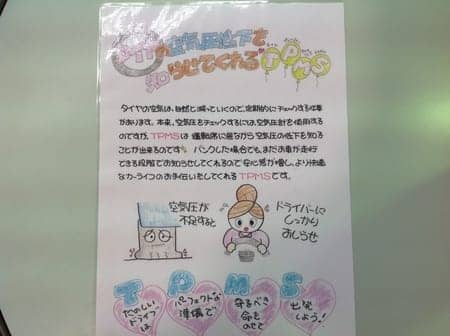 タイヤの空気圧低下を
知らせてくれるTPMS
タイヤの空気は、自然と減っていくので、定期的にチェックする必要
があります。本来、空気圧をチェックするには、空気圧計を使用する
のですが、TPMSは運転席に居ながら空気圧の低下を知る
ことが出来るのです パンクした場合でも、まだお車が走行
できる段階でお知らせしてくれるので安心感が増し、より快適
なカーライフのお手伝いをしてくれるTPMSです。
空気圧が
不足すると
ドライバーに
しっかり
おしらせ
T P M S
たのしい
ドライブ
は、
パーフェクトな
準備で
守るべき
命を
のせて
出発
しよう!